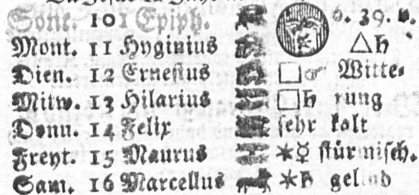 Sont. 10 1 Epiph. 6. 39. v.
Mont. 11 Hyginius △♄
Dien. 12 Ernestus □☞ Witte-
Mitw. 13 Hilarius □♄ rung
Donn. 14 Felix sehr kalt
Freyt. 15 Maurus ✶☿ stürmisch.
Sam. 16 Marcellus ✶♄ gelind